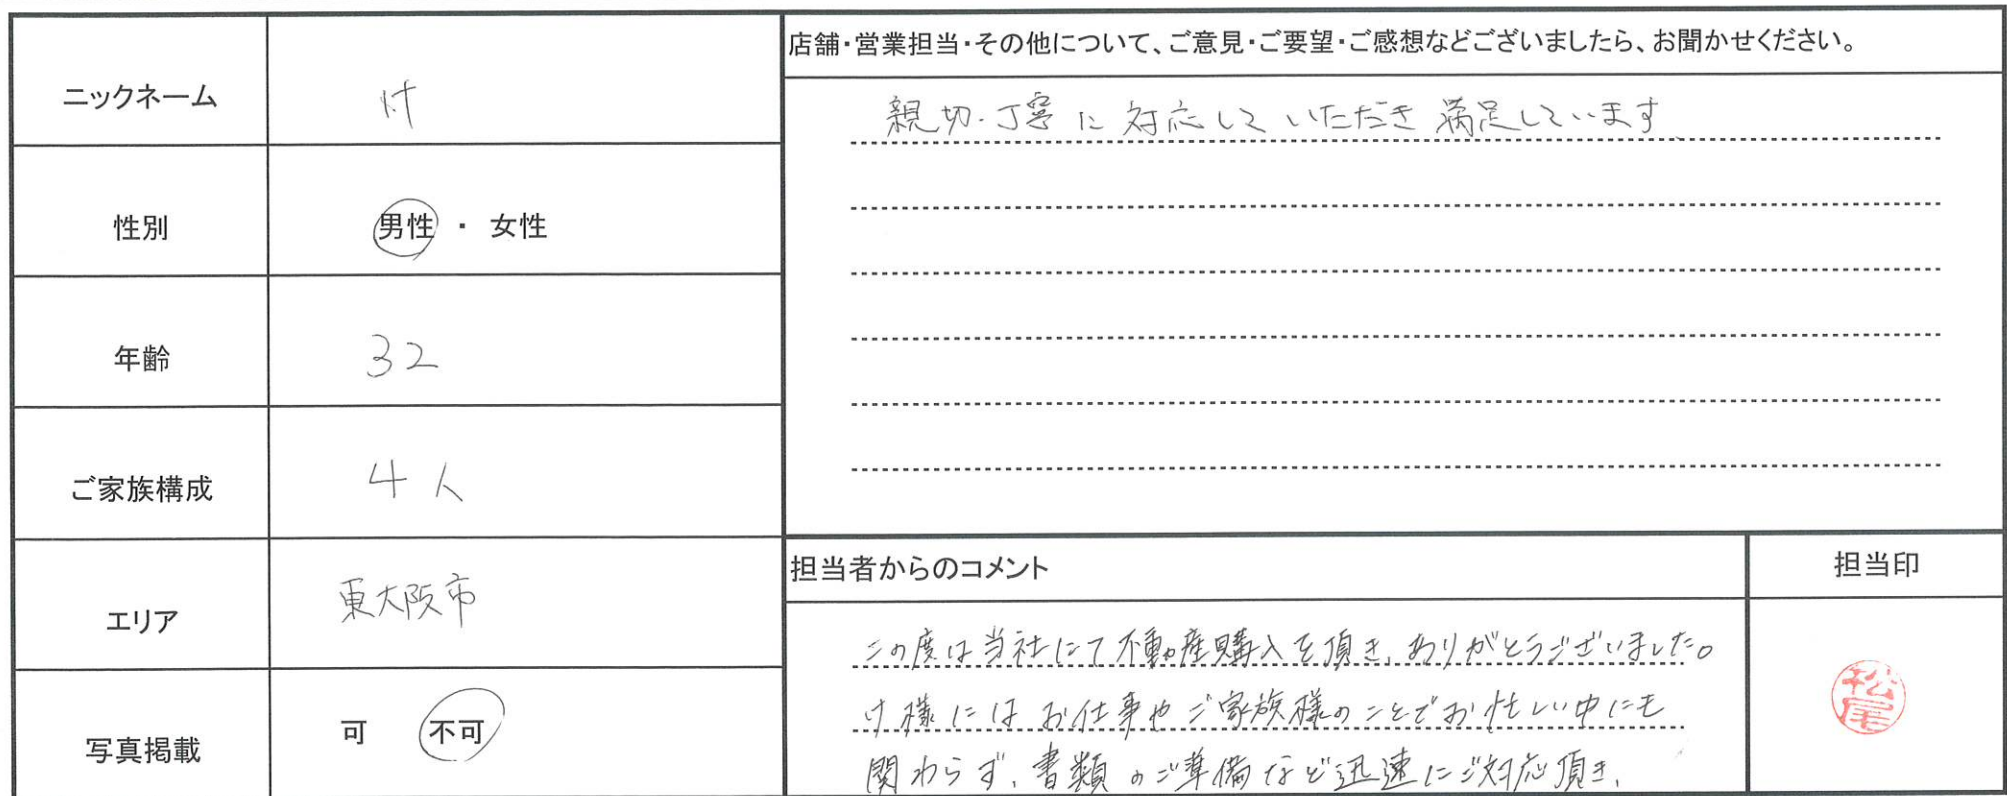 ニックネーム
け
性別
男性 ・ 女性
年齢
32
ご家族構成
4人
エリア
東大阪市
写真掲載
可 不可
店舗・営業担当・その他について、ご意見・ご要望・ご感想などございましたら、お聞かせください。
親切・丁寧に対応していただき満足しています
担当者からのコメント
この度は当社にて不動産購入を頂き、ありがとうございました。
け様にはお仕事やご家族様のことでお忙しい中にも
関わらず、書類のご準備など迅速にご対応頂き、
担当印
松尾